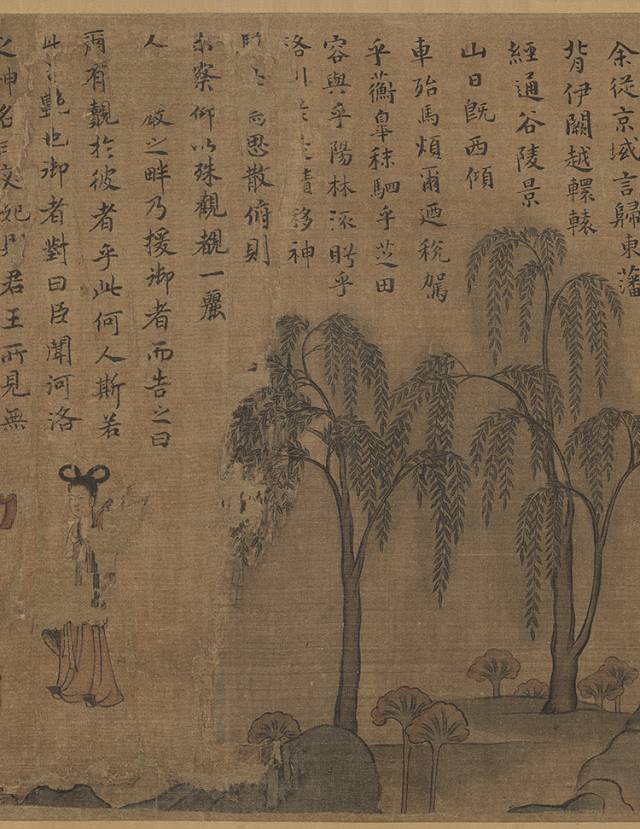 余從京域言歸東藩
背伊闕越轘轅
經通谷陵景
山日既西傾
車殆馬煩爾迺稅駕
乎蘅皋秣駟乎芝田
容與乎陽林流眄乎
洛川於是精移神
焉思散俯則
未察仰以殊觀覩一麗
人 之畔乃援御者而告之曰
爾有覿於彼者乎此何人斯若
此之艷也御者對曰臣聞河洛
之神名曰宓妃則君王所見無